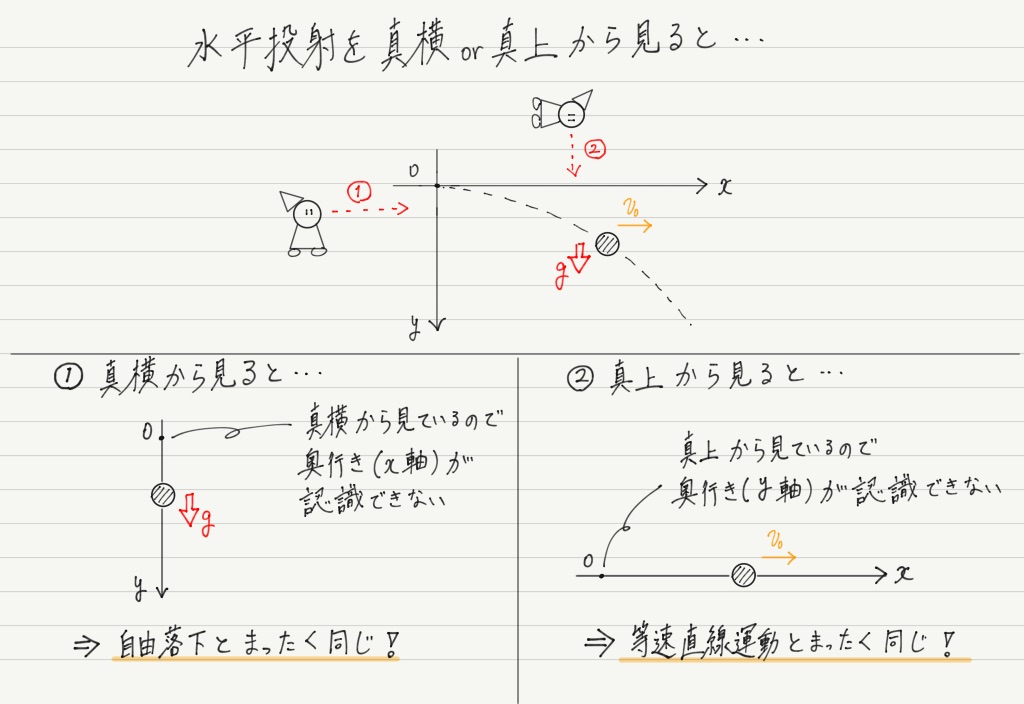 水平投射を真横or真上から見ると…
②
①
O
x
v₀
g
y
① 真横から見ると…
O
真横から見ているので
奥行き(x軸)が
認識できない
g
y
⇒ 自由落下とまったく同じ!
② 真上から見ると…
真上から見ているので
奥行き(y軸)が認識できない
v₀
O
x
⇒ 等速直線運動とまったく同じ!